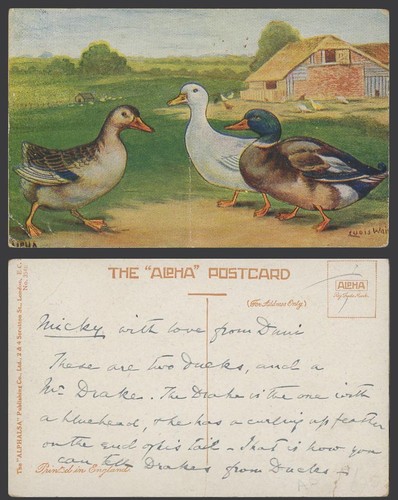 ALPHA
Louis Wain
THE "ALPHA" POSTCARD
(For Address Only)
ALPHA
The "ALPHALSA" Publishing Co., Ltd., 2 & 4 Scrutton St., London, E.C.
Micky with love from
These are two ducks, and a
Mr Drake. The Drake is the one with
a blue head, & he has a curling up feather
on the end of his tail – that is how you
can tell Drakes from Ducks –
Printed in England